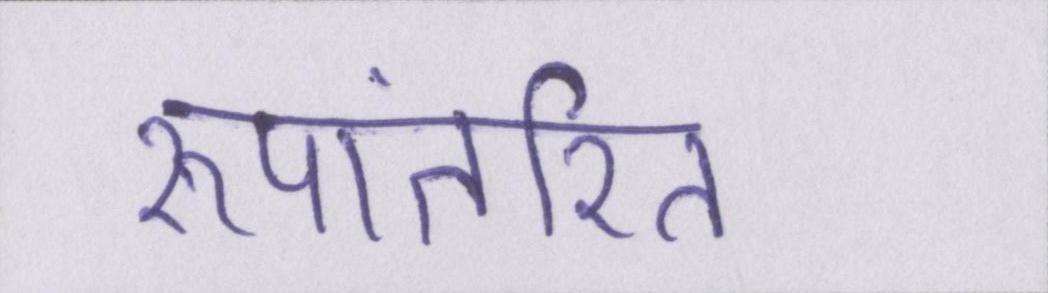 रूपांतरित